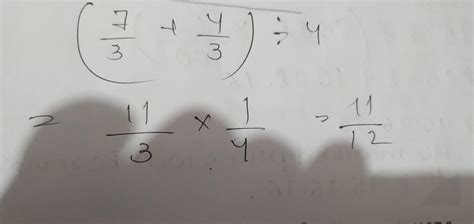 (7/3 + 4/3) ÷ 4
= 11/3 × 1/4 = 11/12